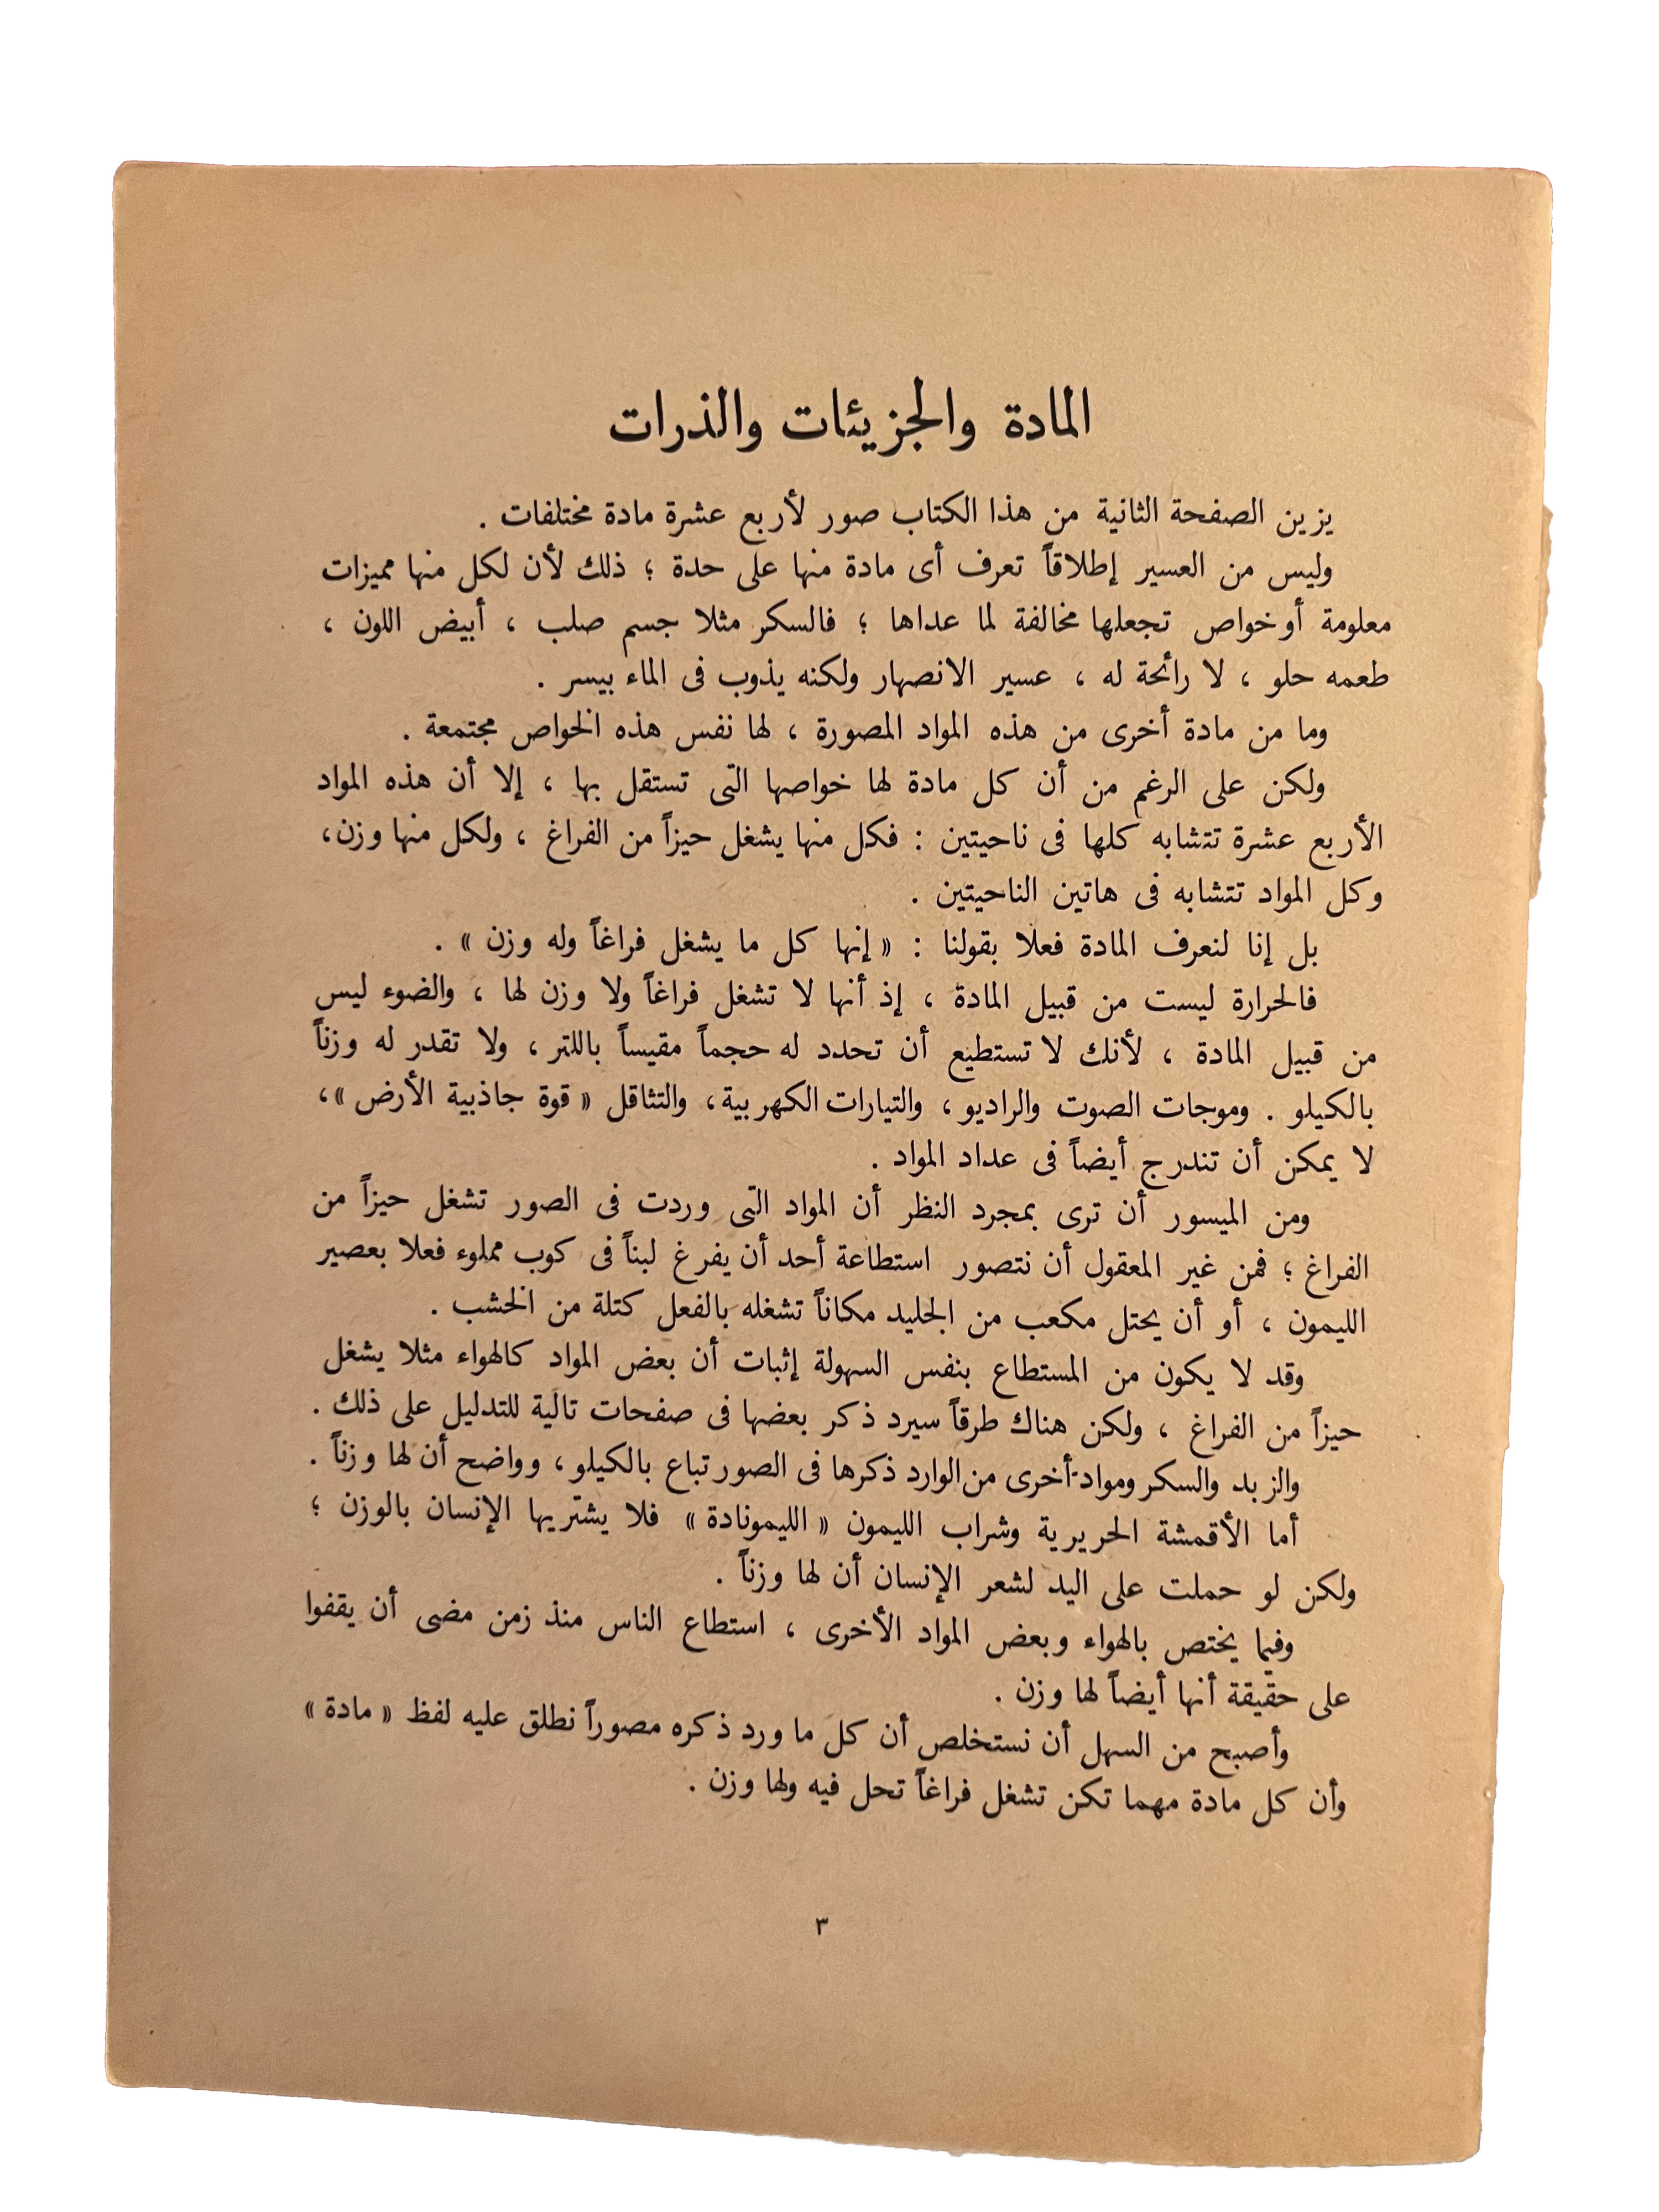 المادة والجزيئات والذرات
يزين الصفحة الثانية من هذا الكتاب صور لأربع عشرة مادة مختلفات .
وليس من العسير إطلاقاً تعرف أى مادة منها على حدة ؛ ذلك لأن لكل منها مميزات
معلومة أو خواص تجعلها مخالفة لما عداها ؛ فالسكر مثلا جسم صلب ، أبيض اللون ،
طعمه حلو ، لا رائحة له ، عسير الانصهار ولكنه يذوب فى الماء بيسر .
وما من مادة أخرى من هذه المواد المصورة ، لها نفس هذه الخواص مجتمعة .
ولكن على الرغم من أن كل مادة لها خواصها التى تستقل بها ، إلا أن هذه المواد
الأربع عشرة تتشابه كلها فى ناحيتين : فكل منها يشغل حيزاً من الفراغ ، ولكل منها وزن،
وكل المواد تتشابه فى هاتين الناحيتين .
بل إنا لنعرف المادة فعلا بقولنا : « إنها كل ما يشغل فراغاً وله وزن » .
فالحرارة ليست من قبيل المادة ، إذ أنها لا تشغل فراغاً ولا وزن لها ، والضوء ليس
من قبيل المادة ، لأنك لا تستطيع أن تحدد له حجماً مقيساً باللتر ، ولا تقدر له وزناً
بالكيلو . وموجات الصوت والراديو ، والتيارات الكهربية، والتثاقل « قوة جاذبية الأرض »،
لا يمكن أن تندرج أيضاً فى عداد المواد .
ومن الميسور أن ترى بمجرد النظر أن المواد التى وردت فى الصور تشغل حيزاً من
الفراغ ؛ فمن غير المعقول أن نتصور استطاعة أحد أن يفرغ لبناً فى كوب مملوء فعلا بعصير
الليمون ، أو أن يحتل مكعب من الجليد مكاناً تشغله بالفعل كتلة من الخشب .
وقد لا يكون من المستطاع بنفس السهولة إثبات أن بعض المواد كالهواء مثلا يشغل
حيزاً من الفراغ ، ولكن هناك طرقاً سيرد ذكر بعضها فى صفحات تالية للتدليل على ذلك .
والزبد والسكر ومواد أخرى من الوارد ذكرها فى الصور تباع بالكيلو ، وواضح أن لها وزناً .
أما الأقمشة الحريرية وشراب الليمون « الليمونادة » فلا يشتريها الإنسان بالوزن ؛
ولكن لو حملت على اليد لشعر الإنسان أن لها وزناً .
وفيما يختص بالهواء وبعض المواد الأخرى ، استطاع الناس منذ زمن مضى أن يقفوا
على حقيقة أنها أيضاً لها وزن .
وأصبح من السهل أن نستخلص أن كل ما ورد ذكره مصوراً نطلق عليه لفظ « مادة »
وأن كل مادة مهما تكن تشغل فراغاً تحل فيه ولها وزن .
٣